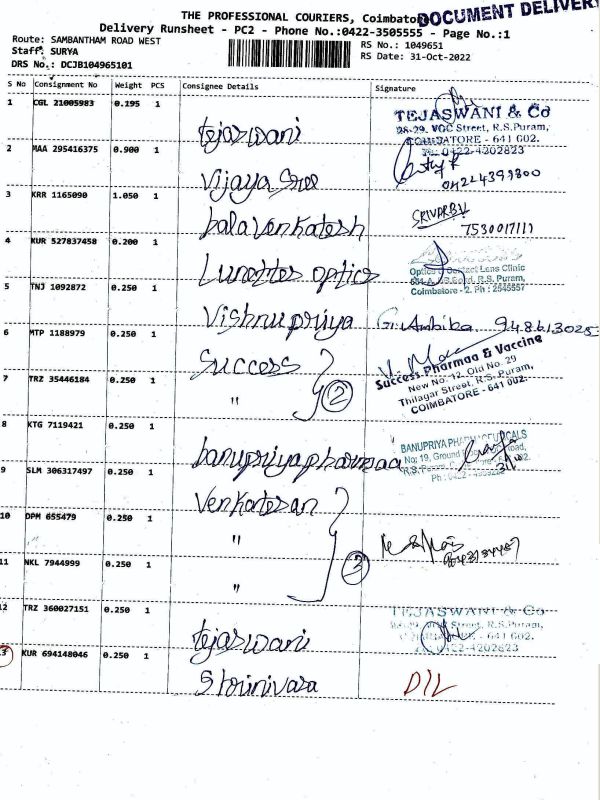 THE PROFESSIONAL COURIERS, Coimbato
DOCUMENT DELIVER
Delivery Runsheet - PC2 - Phone No.:0422-3505555 - Page No.:1
Route: SAMBANTHAM ROAD WEST
RS No.: 1049651
Staff: SURYA
RS Date: 31-Oct-2022
DRS No.: DCJB104965101
S No Consignment No Weight PCS Consignee Details Signature
1 CGL 21005983 0.195 1 tejaswani
TEJASWANI & Co
28-29, VOC Street, R.S.Puram,
COIMBATORE - 641 002.
Ph: 0422-4202823
2 MAA 295416375 0.900 1 Vijaya Sree
04224399800
3 KRR 1165090 1.050 1 balavenkatesh
7530017111
4 KUR 527837458 0.200 1 Lunottes optics
Optics & Contact Lens Clinic
R.S. Puram,
Coimbatore - 2. Ph : 2545557
5 TNJ 1092872 0.250 1 Vishnupriya
G. Ambika 948613025
6 MTP 1188979 0.250 1 Success
Success Pharmaa & Vaccine
New No. 12, Old No. 29
Thilagar Street, R.S. Puram,
COIMBATORE - 641 002.
7 TRZ 35446184 0.250 1 " 2
8 KTG 7119421 0.250 1 banupriyapharmaa
BANUPRIYA PHARMACEUTICALS
No; 19, Ground Road,
9 SLM 306317497 0.250 1 Venkatesan
10 DPM 655479 0.250 1 "
11 NKL 7944999 0.250 1 " 3
12 TRZ 360027151 0.250 1 tejaswani
TEJASWANI & Co
28-29, VOC Street, R.S.Puram,
COIMBATORE - 641 002.
0422-4202823
13 KUR 694148046 0.250 1 Shrinivasa
D/L